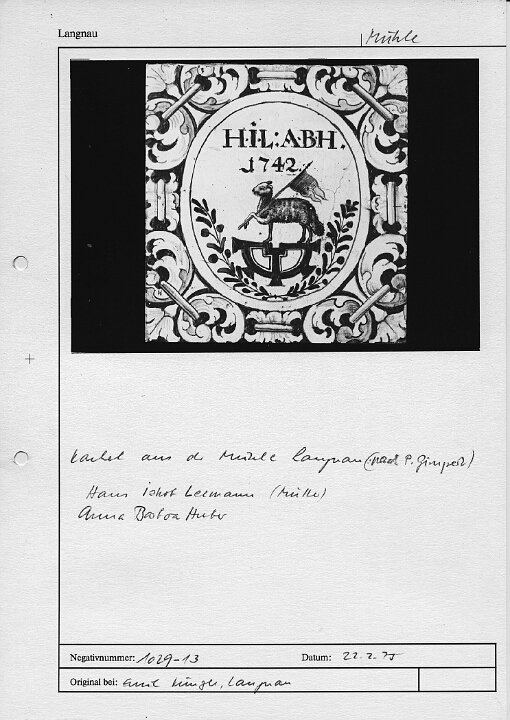 Langnau
Mühle
H·IL:ABH.
1742.
Kachel aus der Mühle Langnau (nach P. Gimpert)
Hans Jakob Leemann (Müller)
Anna Barbara Huber
Negativnummer: 1029-13
Datum: 22.2.75
Original bei: Emil Künzle, Langnau